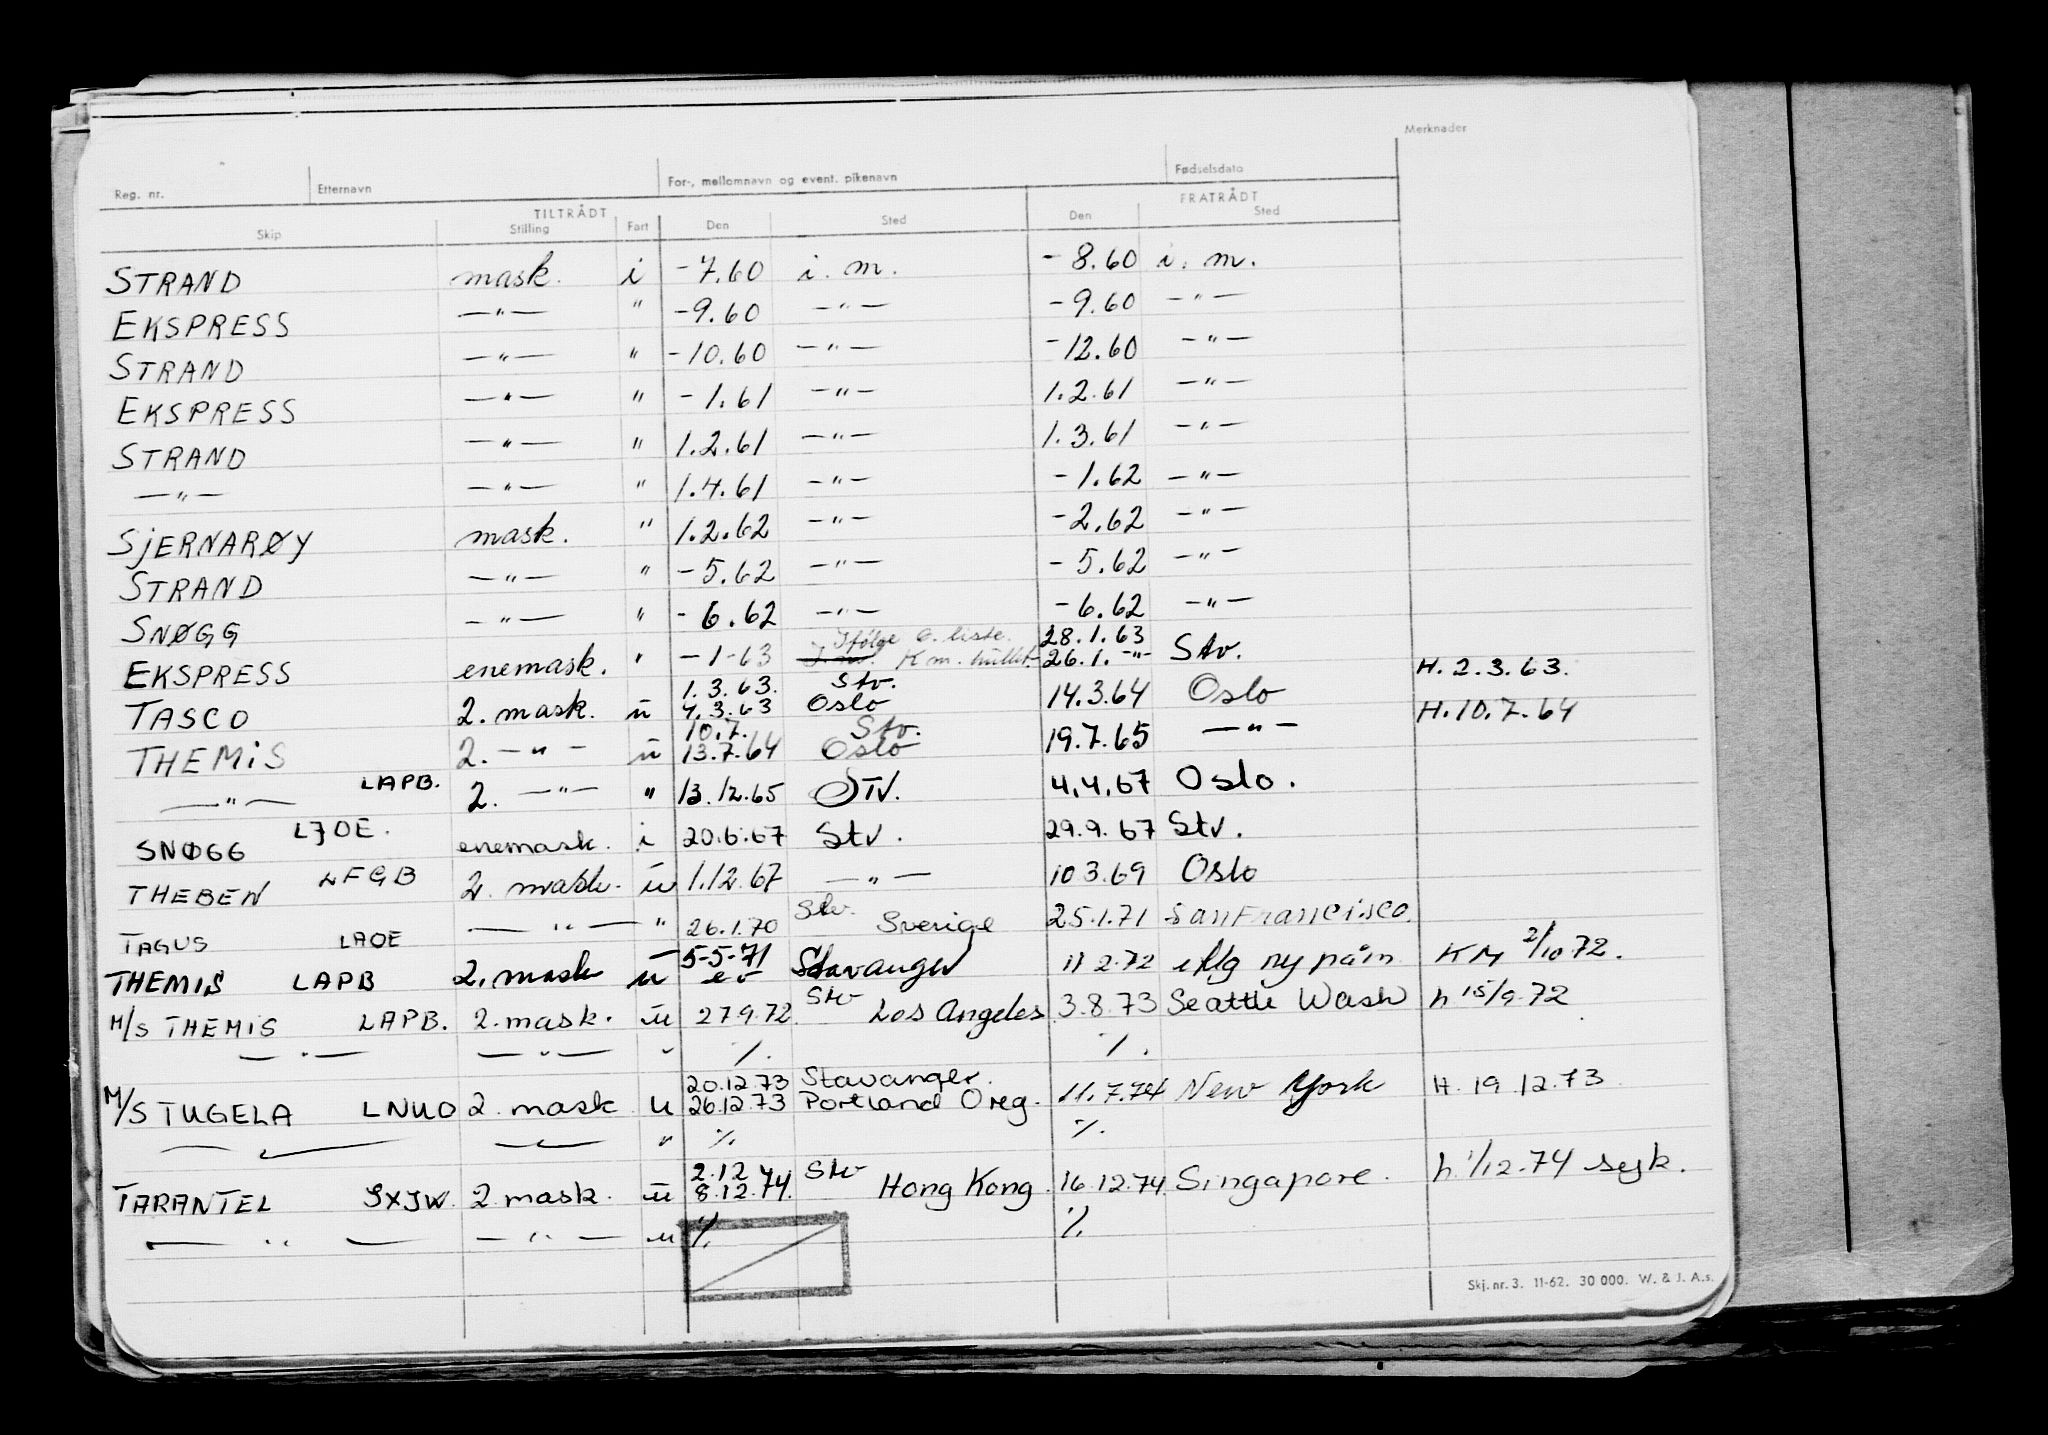 Merknader
Reg. nr. Etternavn For-, mellomnavn og event. pikenavn Fødselsdato
TILTRÅDT FRATRÅDT
Skip Stilling Fart Den Sted Den Sted
STRAND mask. i -7.60 i. m. -8.60 i. m.
EKSPRESS —"— " -9.60 —"— -9.60 —"—
STRAND —"— " -10.60 —"— -12.60 —"—
EKSPRESS —"— " -1.61 —"— 1.2.61 —"—
STRAND —"— " 1.2.61 —"— 1.3.61 —"—
—"— —"— " 1.4.61 —"— -1.62 —"—
SJERNARØY mask. " 1.2.62 —"— -2.62 —"—
STRAND —"— " -5.62 —"— -5.62 —"—
SNØGG —"— " -6.62 —"— -6.62 —"—
Ifølge liste. 28.1.63
EKSPRESS enemask. " -1-63 26.1.-"- Stv.
1.3.63. Stv. H. 2.3.63.
TASCO 2. mask. ū 4.3.63 Oslo 14.3.64 Oslo
10.7. Stv. H. 10.7.64
THEMIS 2. —"— ū 13.7.64 Oslo 19.7.65 —"—
—"— LAPB. 2. —"— " 13.12.65 STV. 4.4.67 Oslo.
SNØGG LJOE. enemask. i 20.6.67 Stv. 29.9.67 Stv.
THEBEN LFGB 2. mask. ū 1.12.67 —"— 10 3.69 Oslo
TAGUS LAOE —"— " 26.1.70 Stv. Sverige 25.1.71 San Francisco.
5-5-71
THEMIS LAPB 2. mask ū Stavanger 11 2.72 ny KM 2/10 72.
M/S THEMIS LAPB. 2. mask. ū 27 9.72 Stv Los Angeles 3.8.73 Seattle Wash h 15/9.72
—"— —"— " ./. ./.
20.12.73 Stavanger.
M/S TUGELA LNUO 2. mask u 26.12.73 Portland Oreg. 11.7.74 New York H. 19.12.73
—"— —"— " ./. ./.
2.12 Stv
TARANTEL SXJW. 2 mask. ū 8.12.74. Hong Kong. 16.12.74 Singapore. h 1/12.74 sejk.
—"— —"— u ./. ./.
Skj. nr. 3. 11-62. 30 000. W. & J. A.s.